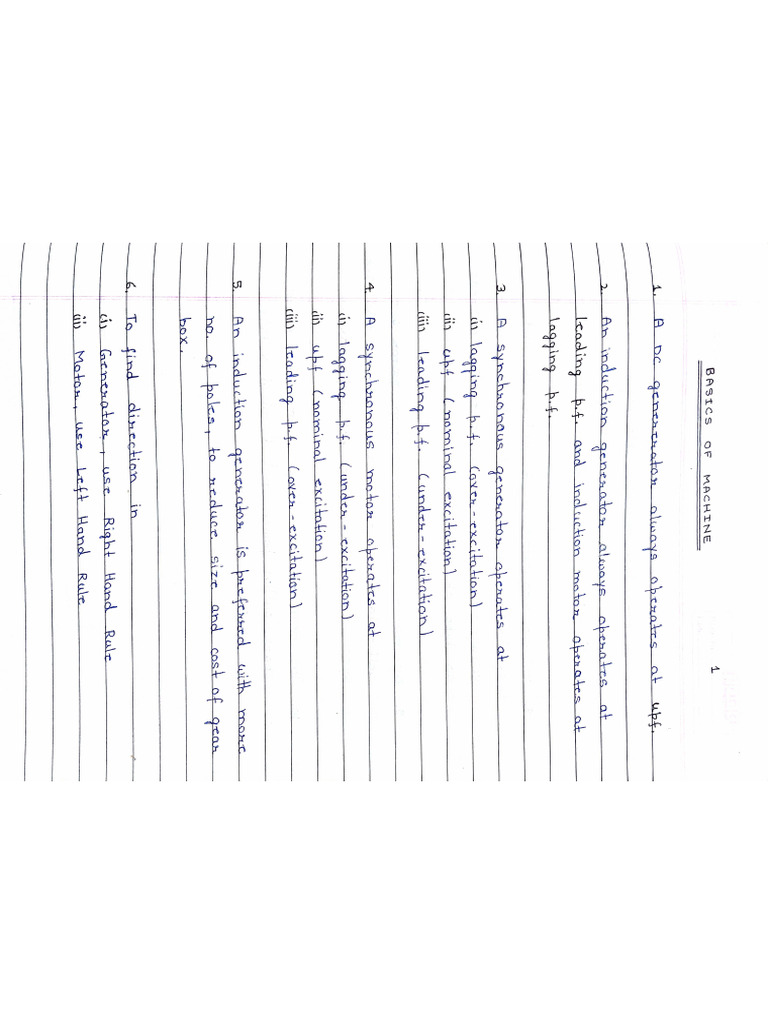 BASICS OF MACHINE
1
1. A DC generator always operates at upf.
2. An induction generator always operates at
leading p.f. and induction motor operates at
lagging p.f.
3. A synchronous generator operates at
(i) lagging p.f. (over-excitation)
(ii) upf (nominal excitation)
(iii) leading p.f. (under-excitation)
4. A synchronous motor operates at
(i) lagging p.f. (under-excitation)
(ii) upf (nominal excitation)
(iii) leading p.f. (over-excitation)
5. An induction generator is preferred with more
no. of poles, to reduce size and cost of gear
box.
6. To find direction in
(i) Generator, use Right Hand Rule
(ii) Motor, use Left Hand Rule